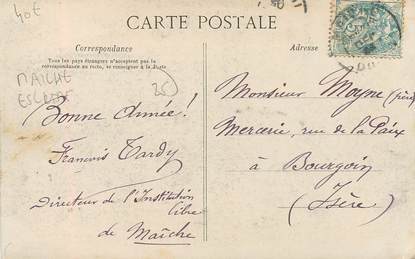 40€
CARTE POSTALE
Correspondance
Adresse
Tous les pays étrangers n'acceptent pas la
correspondance au recto, se renseigner à la Poste
MAICHE
25
Bonne Année!
François Tardy
Directeur de l'Institution
libre
de Maîche
Monsieur Moyne (père)
Mercerie, rue de la Paix
à Bourgoin
(Isère)